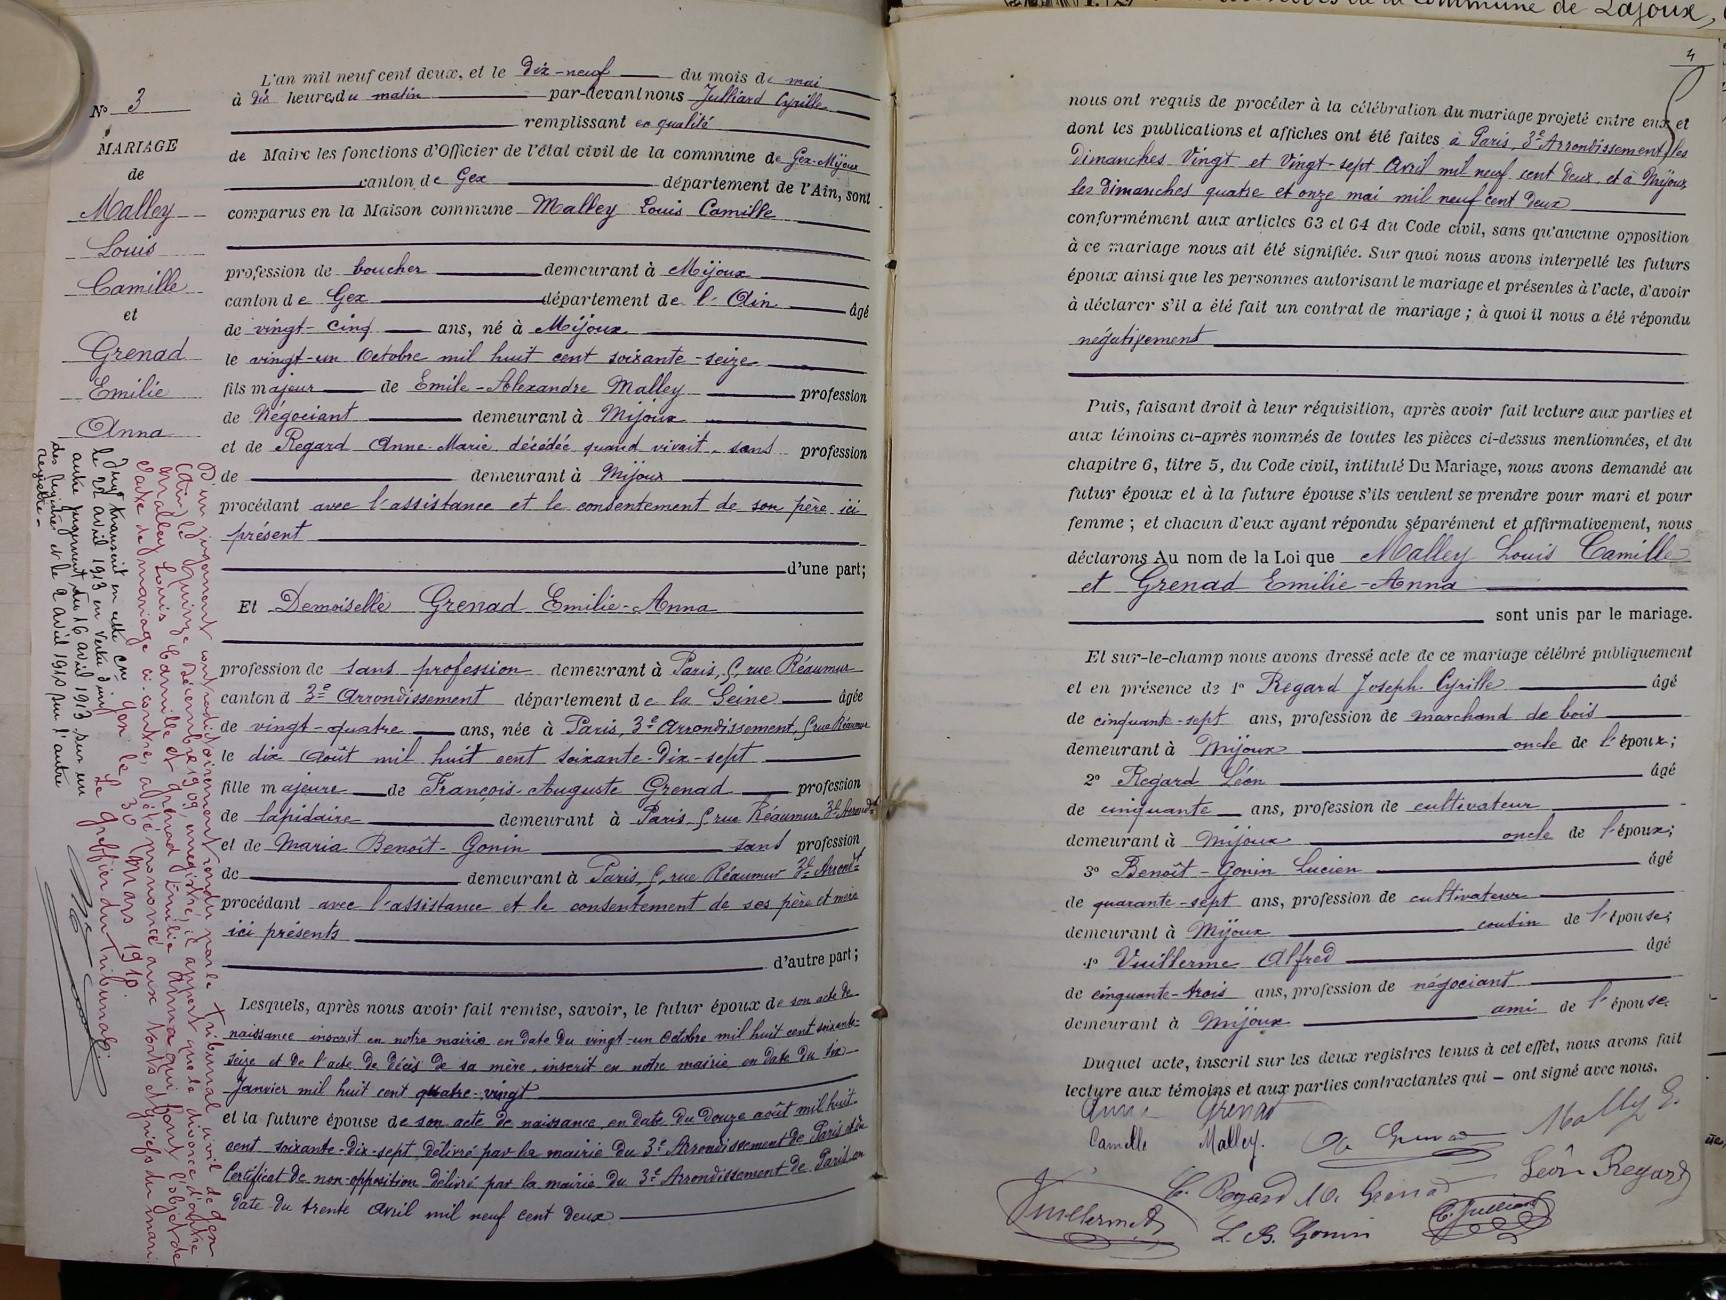 L'an mil neuf cent deux, et le Dix-neuf du mois de mai
à dix heures du matin par-devant nous Julliard Cyrille
remplissant en qualité
de Maire les fonctions d'Officier de l'état civil de la commune de Gex-Mijoux
canton de Gex département de l'Ain, sont
comparus en la Maison commune Malley Louis Camille
profession de boucher demeurant à Mijoux
canton de Gex département de l'Ain âgé
de vingt-cinq ans, né à Mijoux
le vingt-un Octobre mil huit cent soixante-seize
fils majeur de Emile-Alexandre Malley profession
de Négociant demeurant à Mijoux
et de Regard Anne-Marie décédée quand vivait sans profession
de demeurant à Mijoux
procédant avec l'assistance et le consentement de son père ici
présent
d'une part;
Et Demoiselle Grenad Emilie-Anna
profession de sans profession demeurant à Paris, 5, rue Réaumur
canton d 3e Arrondissement département de la Seine âgée
de vingt-quatre ans, née à Paris, 3e Arrondissement, 5 rue Réaumur
le dix Août mil huit cent soixante-dix-sept
fille majeure de François-Auguste Grenad profession
de lapidaire demeurant à Paris 5 rue Réaumur 3e Arrondt
et de Maria Benoît-Gonin sans profession
de demeurant à Paris, 5, rue Réaumur 3e Arrondt
procédant avec l'assistance et le consentement de ses père et mère
ici présents
d'autre part;
Lesquels, après nous avoir fait remise, savoir, le futur époux de son acte de
naissance inscrit en notre mairie en date du vingt-un Octobre mil huit cent soixante-
seize et de l'acte de décès de sa mère inscrit en notre mairie en date du six
Janvier mil huit cent quatre-vingt
et la future épouse de son acte de naissance, en date du douze août mil huit
cent soixante-dix-sept délivré par la mairie du 3e Arrondissement de Paris et du
Certificat de non-opposition délivré par la mairie du 3e Arrondissement de Paris en
date du trente avril mil neuf cent deux
No 3
MARIAGE
de
Malley
Louis
Camille
et
Grenad
Emilie
Anna
D'un jugement contradictoirement rendu par le tribunal civil de Gex
(Ain) le quinze Décembre 1909, enregistré, il appert que le divorce d'entre
Malley Louis Camille et Grenad Emilie Anna qui font l'objet de
l'acte de mariage ci-contre, a été prononcé aux torts et griefs du mari
Gex le 30 Mars 1910.
Le Greffier du Tribunal:
Jugt transcrit en cette cne
le 21 avril 1913 en vertu d'un
autre jugement du 16 avril 1913 sur un
des registres et le 2 avril 1910 sur l'autre
registre.
4
nous ont requis de procéder à la célébration du mariage projeté entre eux et
dont les publications et affiches ont été faites à Paris, 3e Arrondissement, les
Dimanches Vingt et Vingt-sept Avril mil neuf cent deux et à Mijoux
les dimanches quatre et onze mai mil neuf cent deux
conformément aux articles 63 et 64 du Code civil, sans qu'aucune opposition
à ce mariage nous ait été signifiée. Sur quoi nous avons interpellé les futurs
époux ainsi que les personnes autorisant le mariage et présentes à l'acte, d'avoir
à déclarer s'il a été fait un contrat de mariage; à quoi il nous a été répondu
négativement
Puis, faisant droit à leur réquisition, après avoir fait lecture aux parties et
aux témoins ci-après nommés de toutes les pièces ci-dessus mentionnées, et du
chapitre 6, titre 5, du Code civil, intitulé Du Mariage, nous avons demandé au
futur époux et à la future épouse s'ils veulent se prendre pour mari et pour
femme; et chacun d'eux ayant répondu séparément et affirmativement, nous
déclarons Au nom de la Loi que Malley Louis Camille
et Grenad Emilie-Anna
sont unis par le mariage.
Et sur-le-champ nous avons dressé acte de ce mariage célébré publiquement
et en présence de 1o Regard Joseph Cyrille âgé
de cinquante-sept ans, profession de marchand de bois
demeurant à Mijoux oncle de l'époux;
2o Regard Léon âgé
de cinquante ans, profession de cultivateur
demeurant à Mijoux oncle de l'époux;
3o Benoît-Gonin Lucien âgé
de quarante-sept ans, profession de cultivateur
demeurant à Mijoux cousin de l'épouse;
4o Vuillerme Alfred âgé
de cinquante-trois ans, profession de négociant
demeurant à Mijoux ami de l'épouse.
Duquel acte, inscrit sur les deux registres tenus à cet effet, nous avons fait
lecture aux témoins et aux parties contractantes qui - ont signé avec nous.
Anna Grenad
Malley E.
Camille Malley.
Léon Regard
C. Regard M. Grenad
C. Julliard
L. B. Gonin